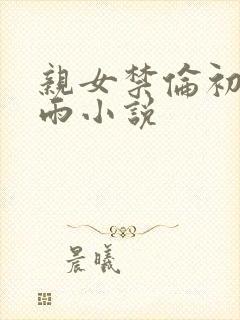 親女禁倫初
雨小説
晨曦